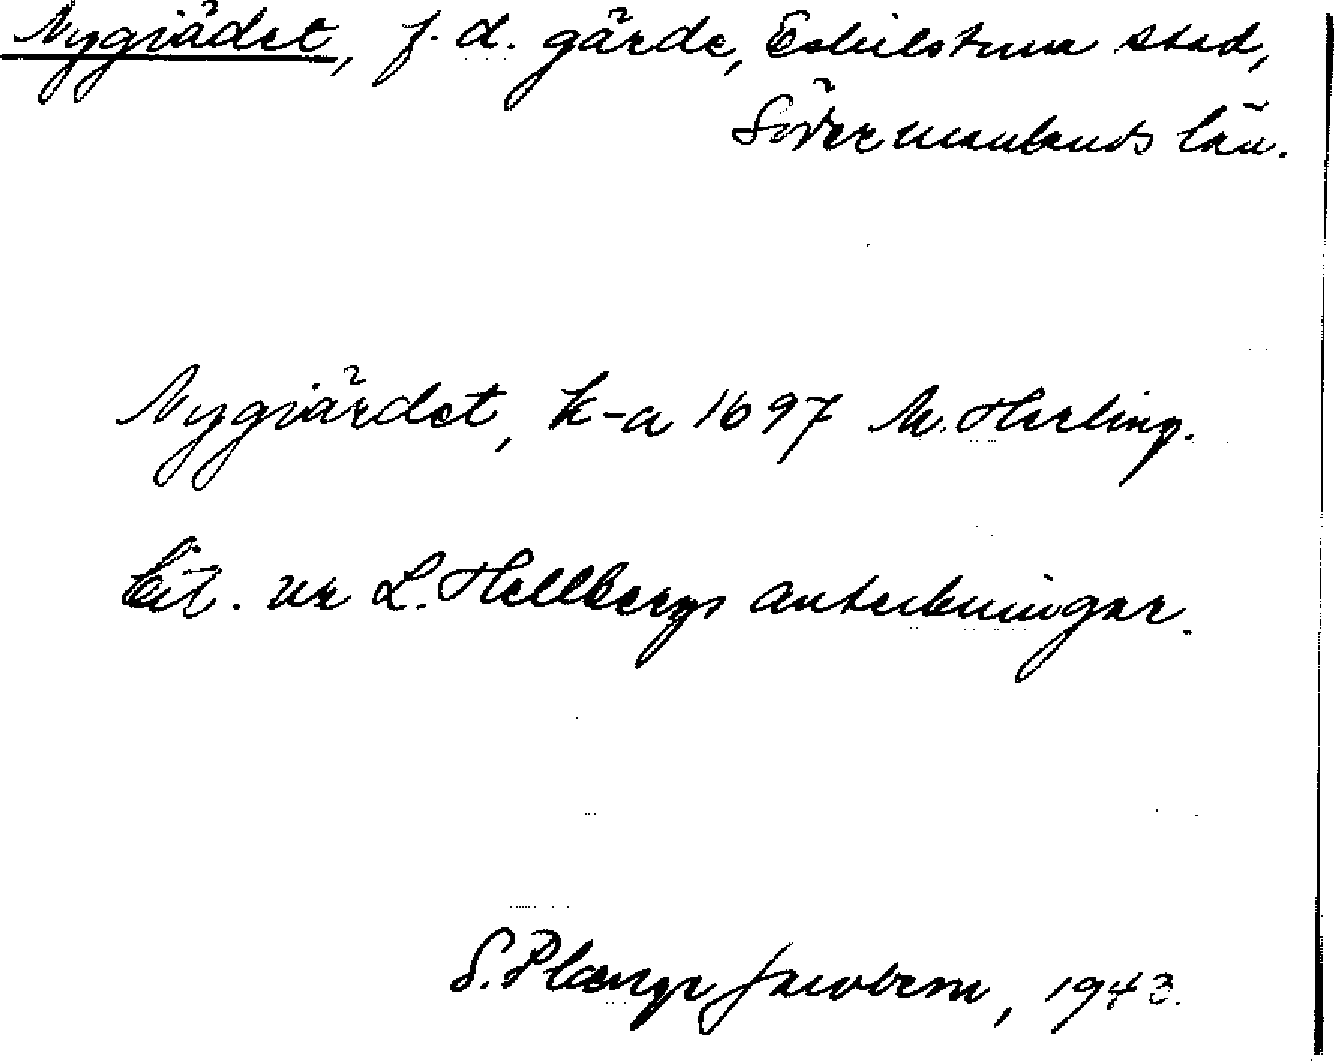 Nygiädet, f. d. gärde, Eskilstuna stad,
Södermanlands län.
Nygiärdet, k-a 1697 M. Herling.
Cit. ur L. Hellbergs anteckningar.
S. Plænge Jacobson, 1943.